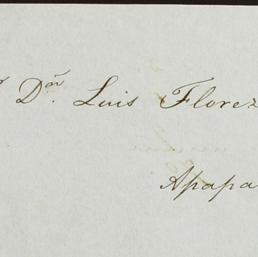 Dⁿ. Luis Florez
Apapa